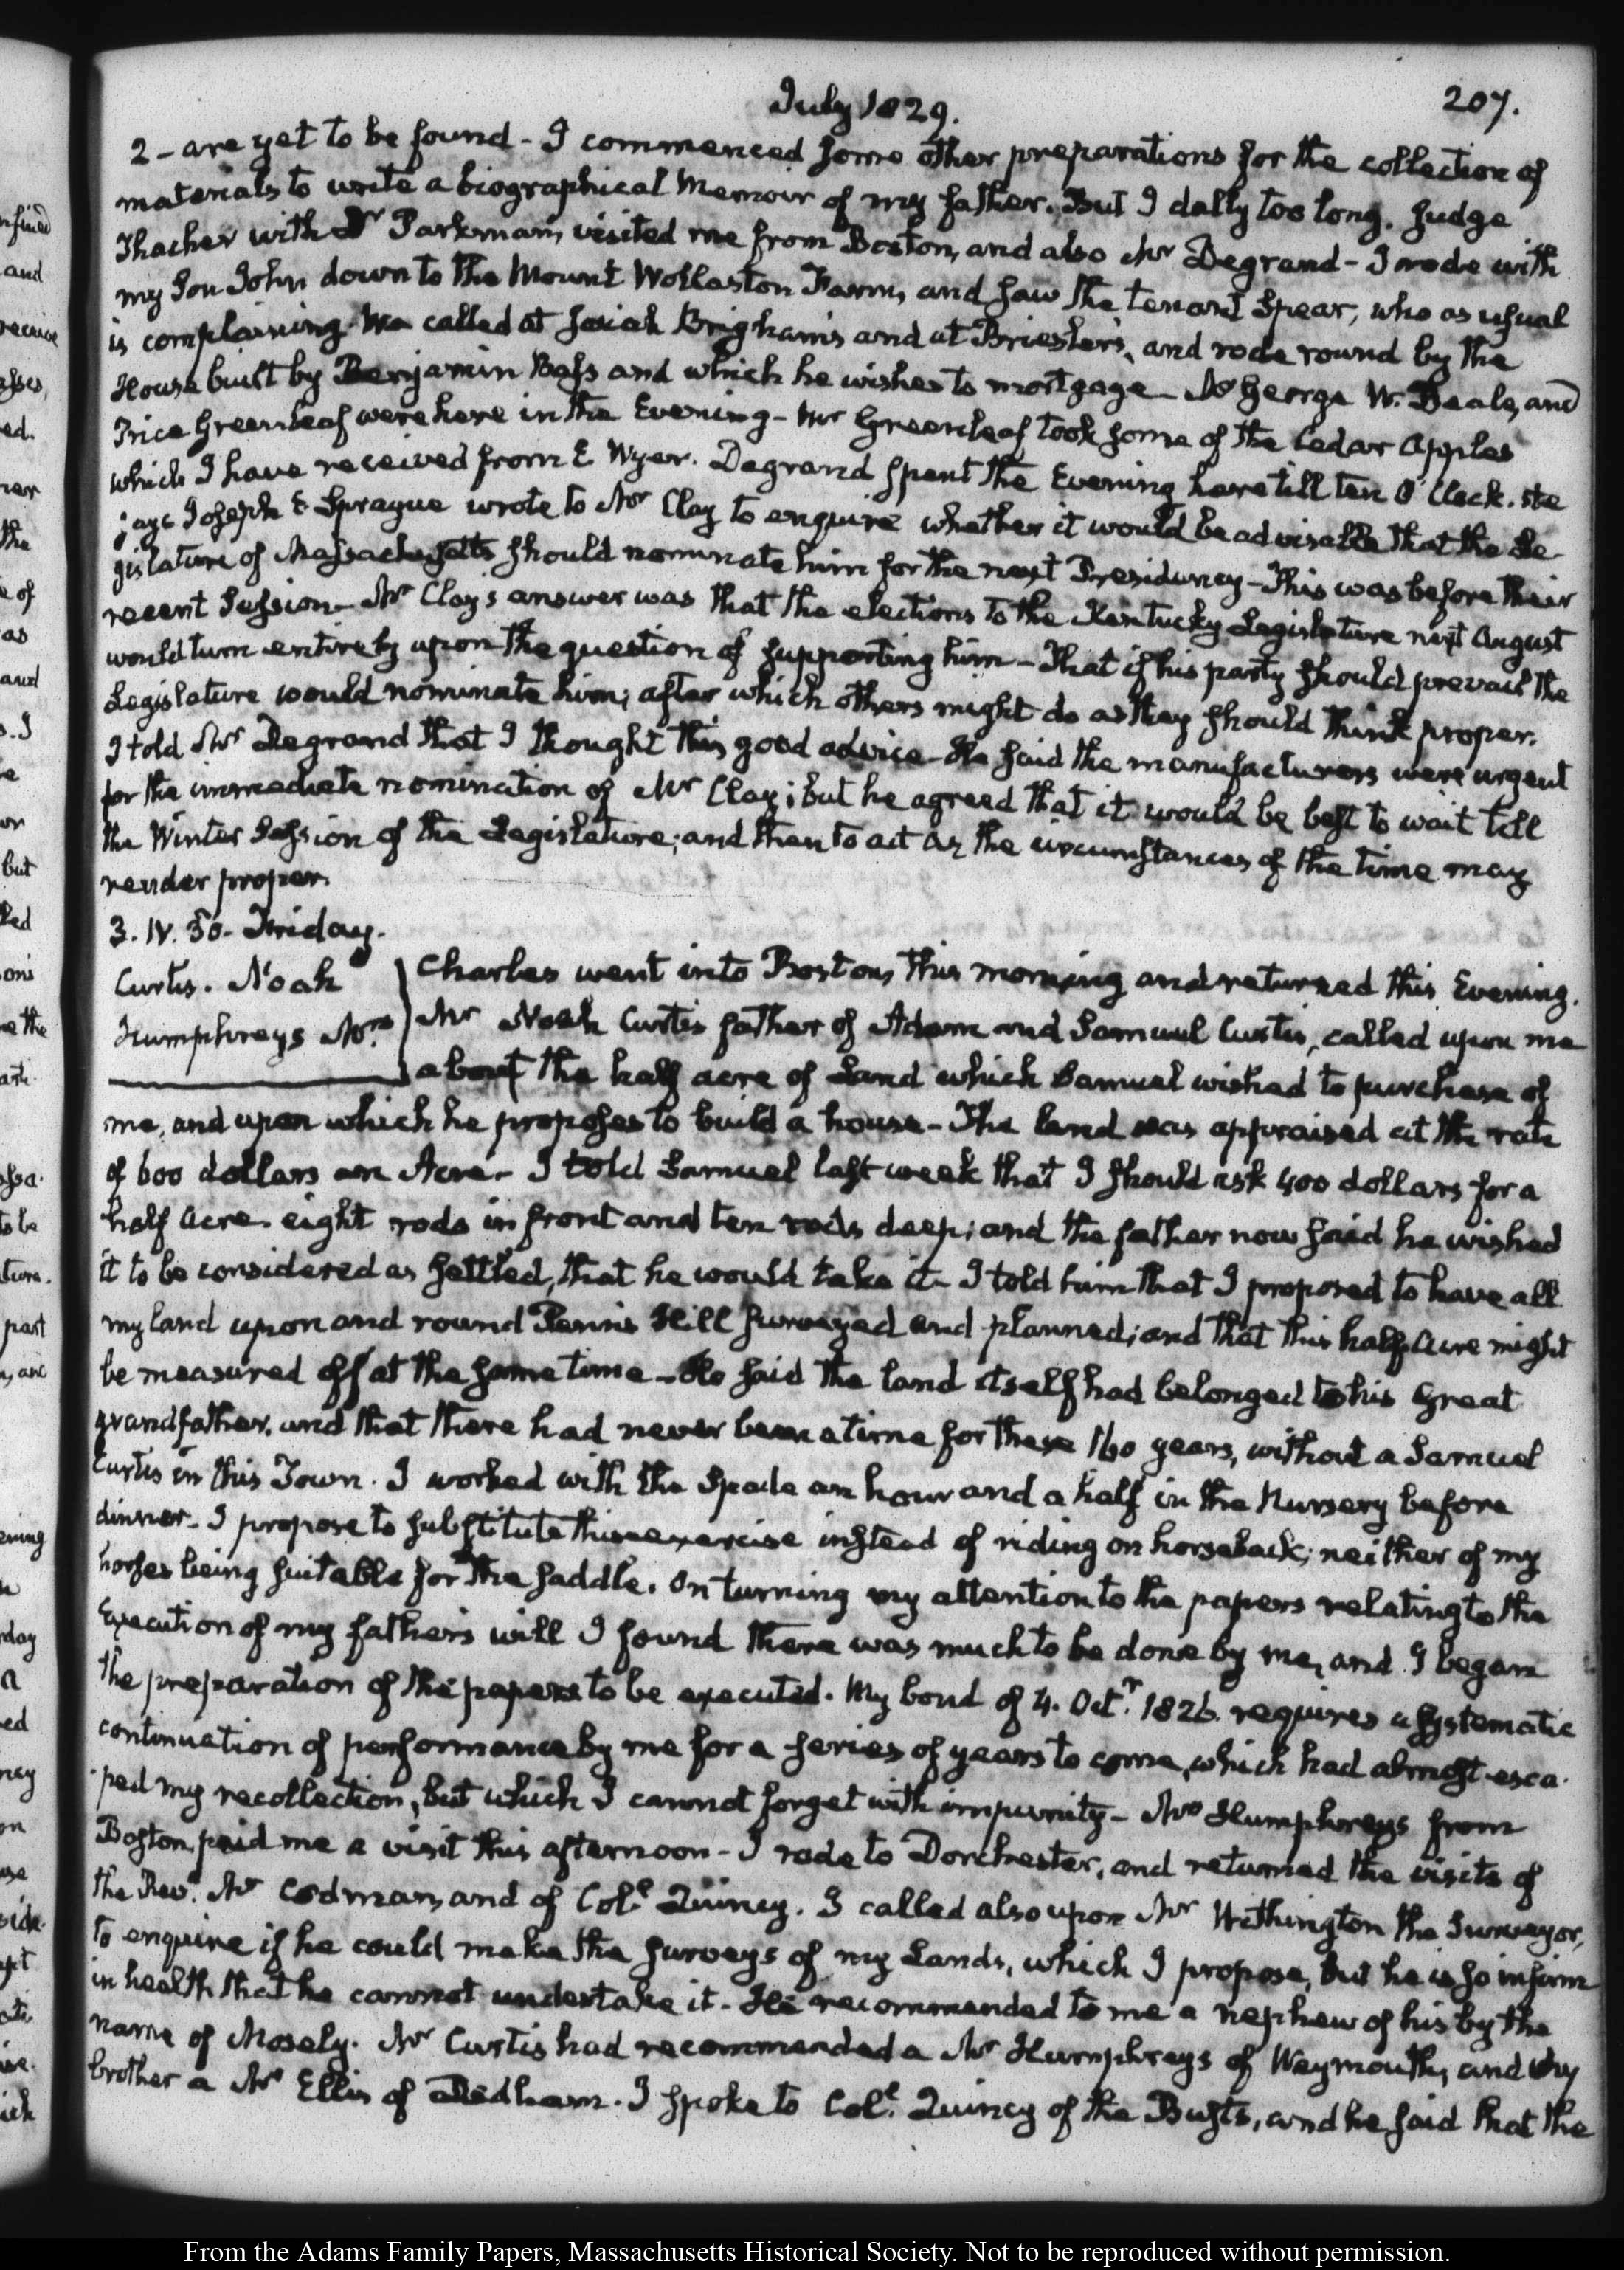 July 1829.
207.
2 - are yet to be found - I commenced some other preparations for the collection of
materials to write a biographical Memoir of my father. But I dally too long. Judge
Thacher with Dr Parkman, visited me from Boston, and also Mr Degrand - I rode with
my Son John down to the Mount Wollaston Farm, and saw the tenant Spear, who as usual
is complaining. We called at Josiah Brigham's and at Briesler's, and rode round by the
House built by Benjamin Bass and which he wishes to mortgage - Mr George W. Beale, and
Price Greenleaf were here in the Evening - Mr Greenleaf took some of the Cedar Apples
which I have received from E Wyer. Degrand spent the Evening here till ten O'Clock. He
says Joseph E Sprague wrote to Mr Clay to enquire whether it would be advisable that the Le-
gislature of Massachusetts should nominate him for the next Presidency - This was before their
recent Session - Mr Clay's answer was that the elections to the Kentucky Legislature next August
would turn entirely upon the question of supporting him - That if his party should prevail the
Legislature would nominate him; after which others might do as they should think proper.
I told Mr Degrand that I thought this good advice - He said the manufacturers were urgent
for the immediate nomination of Mr Clay; but he agreed that it would be best to wait till
the Winter Session of the Legislature; and then to act as the circumstances of the time may
render proper.
3. IV. 30. Friday.
Curtis. Noah
Humphreys Mrs
Charles went into Boston, this morning and returned this Evening.
Mr Noah Curtis father of Adam and Samuel Curtis, called upon me
about the half acre of Land which Samuel wished to purchase of
me, and upon which he proposes to build a house - The land was appraised at the rate
of 600 dollars an Acre - I told Samuel last week that I should ask 400 dollars for a
half Acre. eight rods in front and ten rods deep; and the father now said he wished
it to be considered as settled, that he would take it - I told him that I proposed to have all
my land upon and round Penn's Hill surveyed and planned; and that this half Acre might
be measured off at the same time - He said the land itself had belonged to his Great
grandfather, and that there had never been a time for these 160 years, without a Samuel
Curtis in this Town. I worked with the Spade an hour and a half in the Nursery before
dinner - I propose to substitute this exercise instead of riding on horseback; neither of my
horses being suitable for the saddle. On turning my attention to the papers relating to the
Execution of my father's will I found there was much to be done by me, and I began
the preparation of the papers to be executed. My bond of 4. Octr 1826. requires a systematic
continuation of performance by me for a series of years to come, which had almost esca-
ped my recollection, but which I cannot forget with impunity - Mrs Humphreys from
Boston, paid me a visit this afternoon - I rode to Dorchester, and returned the visits of
the Revd. Mr Codman, and of Col.l Quincy. I called also upon Mr Withington the Surveyor,
to enquire if he could make the surveys of my Lands, which I propose, but he is so infirm
in health that he cannot undertake it - He recommended to me a nephew of his by the
name of Mosely. Mr Curtis had recommended a Mr Humphreys of Weymouth, and my
brother a Mr Ellis of Dedham. I spoke to Col.l Quincy of the Busts, and he said that the
From the Adams Family Papers, Massachusetts Historical Society. Not to be reproduced without permission.